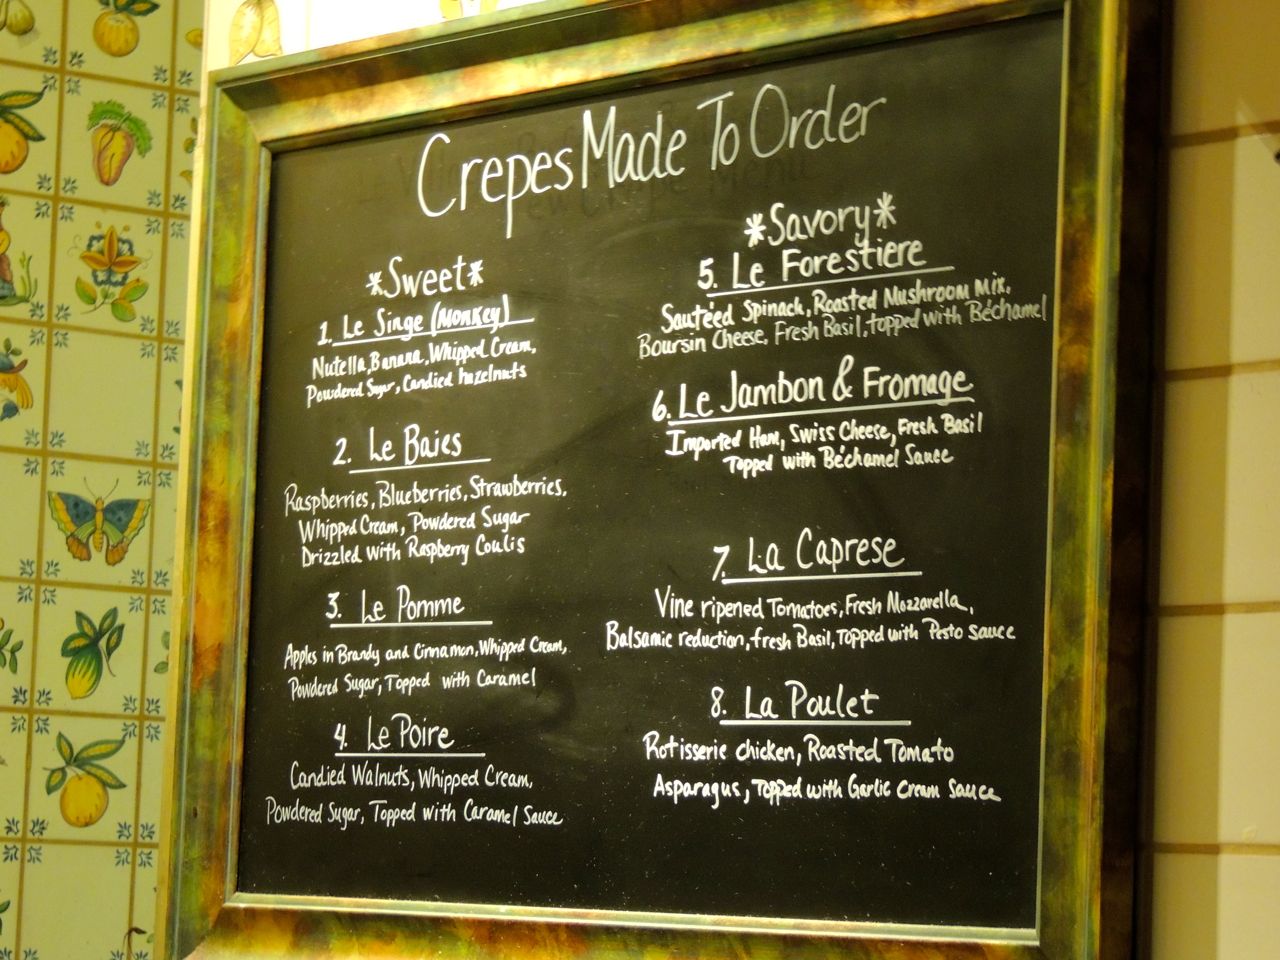 Crepes Made To Order
*Sweet*
1. Le Singe (Monkey)
Nutella, Banana, Whipped Cream,
Powdered Sugar, Candied hazelnuts
2. Le Baies
Raspberries, Blueberries, Strawberries,
Whipped Cream, Powdered Sugar
Drizzled with Raspberry Coulis
3. Le Pomme
Apples in Brandy and Cinnamon, Whipped Cream,
Powdered Sugar, Topped with Caramel
4. Le Poire
Candied Walnuts, Whipped Cream,
Powdered Sugar, Topped with Caramel Sauce
*Savory*
5. Le Forestiere
Sautéed Spinach, Roasted Mushroom Mix,
Boursin Cheese, Fresh Basil, topped with Béchamel
6. Le Jambon & Fromage
Imported Ham, Swiss Cheese, Fresh Basil
Topped with Béchamel Sauce
7. La Caprese
Vine ripened Tomatoes, Fresh Mozzarella,
Balsamic reduction, fresh Basil, Topped with Pesto Sauce
8. La Poulet
Rotisserie chicken, Roasted Tomato
Asparagus, Topped with Garlic Cream Sauce